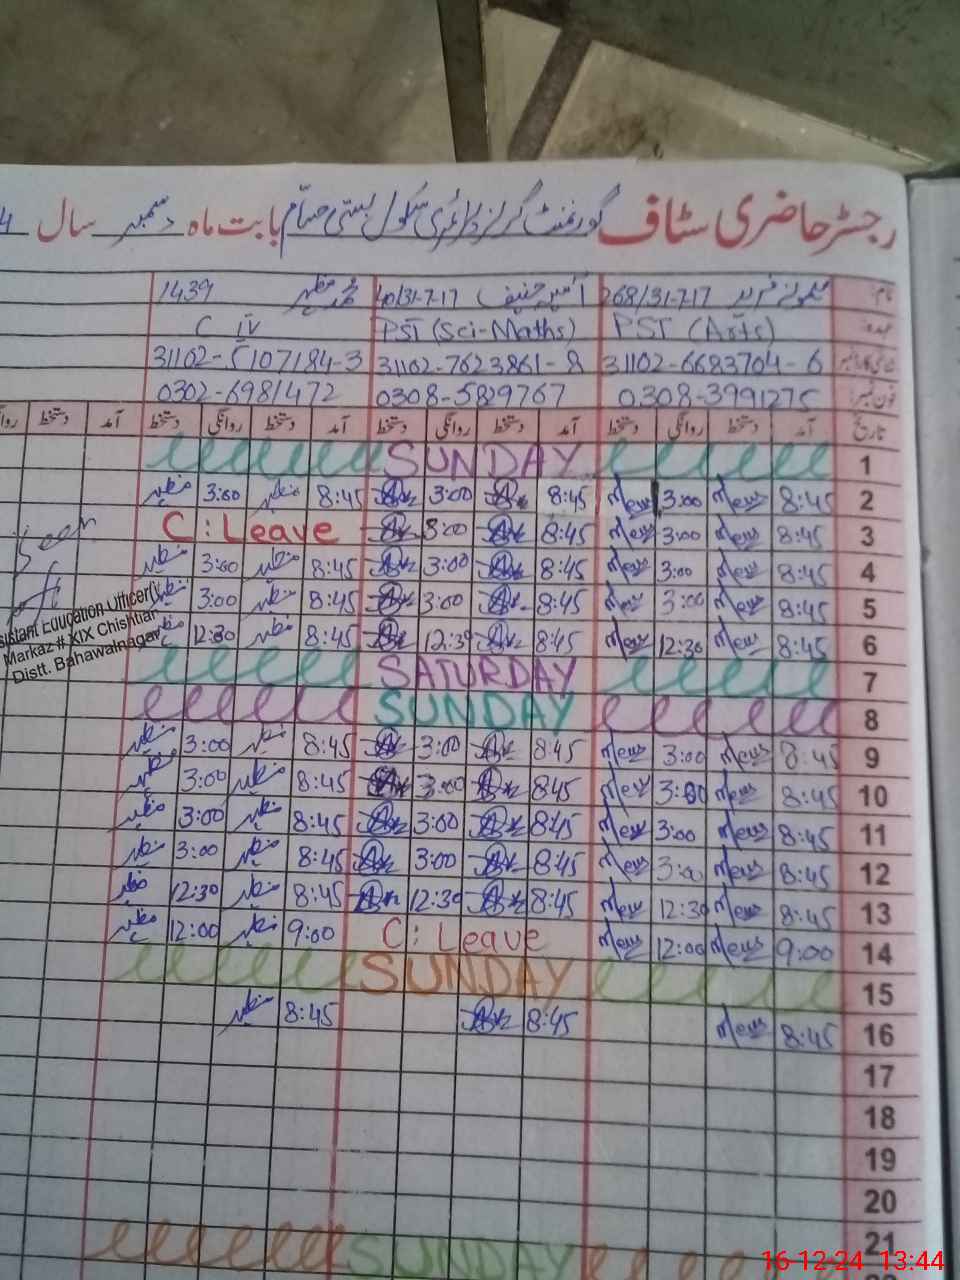 رجسٹر حاضری سٹاف گورنمنٹ گرلز پرائمری سکول بستی بابت ماہ دسمبر سال 4
نام: 268/31-7-17 آمین حنیف 40/31-7-17 محمد مظہر 1439
عہدہ: PST (Arts) PST (Sci-Maths) C IV
31102-6683704-6 31102-7623861-8 31102-5107184-3
فون نمبر: 0308-3991275 0308-5829767 0302-6981472
تاریخ آمد دستخط روانگی دستخط آمد دستخط روانگی دستخط آمد دستخط روانگی دستخط آمد دستخط
1 SUNDAY
2 8:45 3:00 8:45 3:00 8:45 مظہر 3:00 مظہر
3 8:45 3:00 8:45 3:00 C: Leave
4 8:45 3:00 8:45 3:00 8:45 مظہر 3:00 مظہر
5 8:45 3:00 8:45 3:00 8:45 مظہر 3:00 مظہر
6 8:45 12:30 8:45 12:30 8:45 مظہر 12:30 مظہر
7 SATURDAY
8 SUNDAY
9 8:45 3:00 8:45 3:00 8:45 مظہر 3:00 مظہر
10 8:45 3:00 8:45 3:00 8:45 مظہر 3:00 مظہر
11 8:45 3:00 8:45 3:00 8:45 مظہر 3:00 مظہر
12 8:45 3:00 8:45 3:00 8:45 مظہر 3:00 مظہر
13 8:45 12:30 8:45 12:30 8:45 مظہر 12:30 مظہر
14 9:00 12:00 C: Leave 9:00 مظہر 12:00 مظہر
15 SUNDAY
16 8:45 8:45 8:45 مظہر
17
18
19
20
21 SUNDAY
Seen
sistant Education Officer
Markaz # XIX Chishtian
Distt. Bahawalnagar
16-12-24 13:44